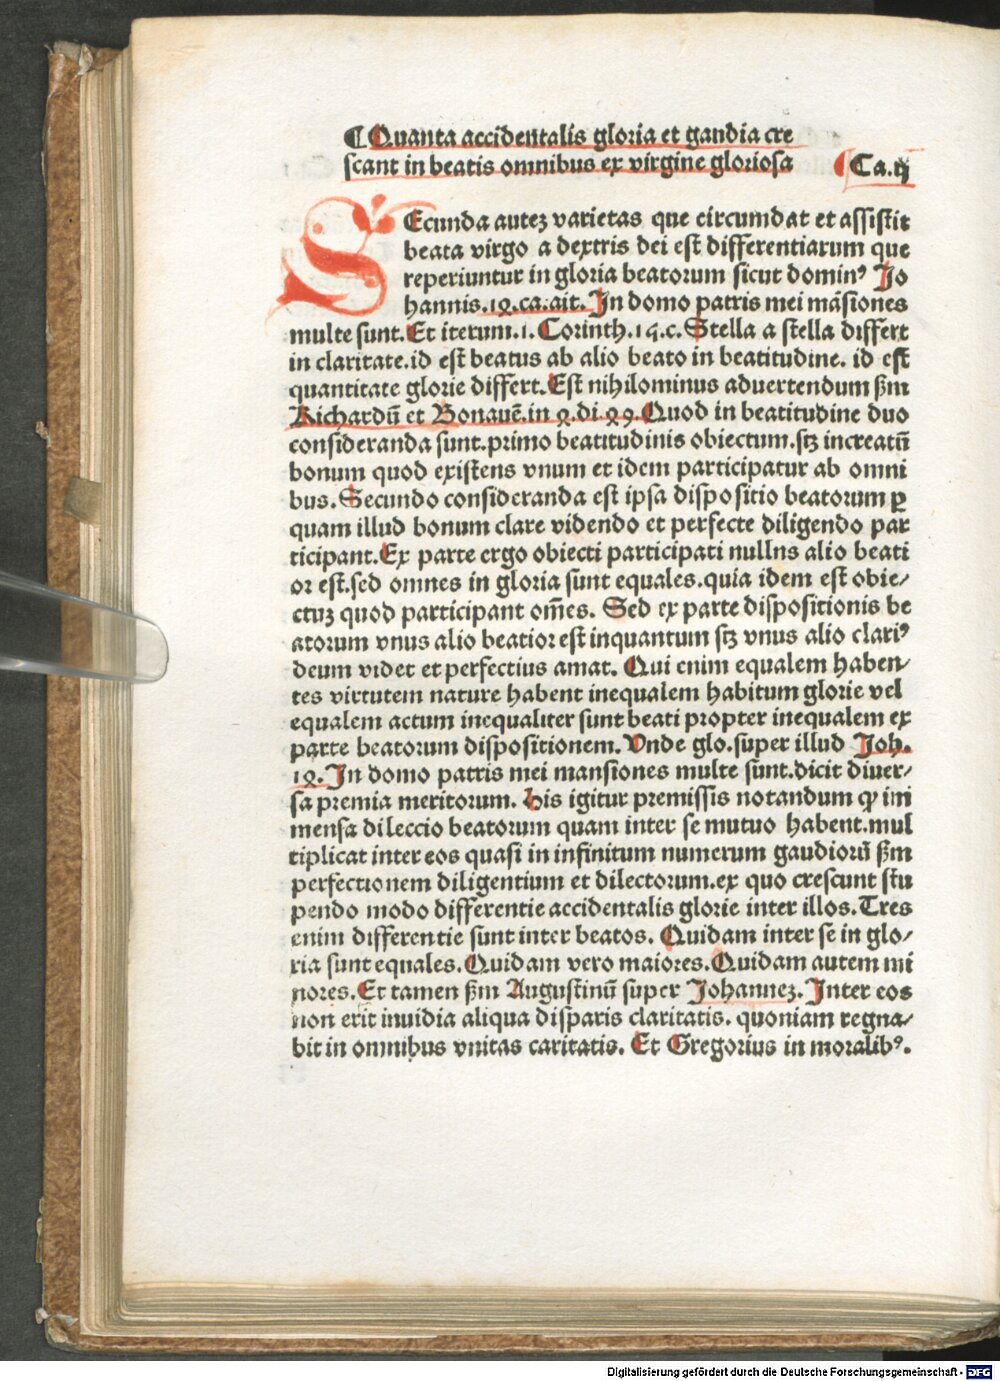 ¶ Quanta accidentalis gloria et gandia cre
scant in beatis omnibus ex virgine gloriosa Ca.ij
SEcunda autez varietas que circumdat et assistit
beata virgo a dextris dei est differentiarum que
reperiuntur in gloria beatorum sicut dominꝰ Jo
hannis.1ꝝ.ca.ait. In domo patris mei mãsiones
multe sunt.Et iterum.1. Corinth.15.c. Stella a stella differt
in claritate.id est beatus ab alio beato in beatitudine. id est
quantitate glorie differt.Est nihilominus aduertendum ẜm
Richardũ et Bonauẽ.in ꝝ.di.ꝝ9.Quod in beatitudine duo
consideranda sunt.primo beatitudinis obiectum.stꝫ increatũ
bonum quod existens vnum et idem participatur ab omni
bus.Secundo consideranda est ipsa dispositio beatorum ꝑ
quam illud bonum clare videndo et perfecte diligendo par
ticipant.Ex parte ergo obiecti participati nullns alio beati
or est.sed omnes in gloria sunt equales.quia idem est obie/
ctuz quod participant om̃es. Sed ex parte dispositionis be
atorum vnus alio beatior est inquantum stꝫ vnus alio clariꝰ
deum videt et perfectius amat. Qui enim equalem haben/
tes virtutem nature habent inequalem habitum glorie vel
equalem actum inequaliter sunt beati propter inequalem ex
parte beatorum dispositionem.Vnde glo.super illud Joh.
1ꝝ.In domo patris mei mansiones multe sunt.dicit diuer/
sa premia meritorum. His igitur premissis notandum ꝙ im
mensa dileccio beatorum quam inter se mutuo habent.mul
tiplicat inter eos quasi in infinitum numerum gaudiorũ ẜm
perfectionem diligentium et dilectorum.ex quo crescunt stu
pendo modo differentie accidentalis glorie inter illos.Tres
enim differentie sunt inter beatos. Quidam inter se in glo/
ria sunt equales.Quidam vero maiores.Quidam autem mi
nores.Et tamen ẜm Augustinũ super Johannez. Inter eos
non erit inuidia aliqua disparis claritatis. quoniam regna/
bit in omnibus vnitas caritatis. Et Gregorius in moralibꝰ.
Digitalisierung gefördert durch die Deutsche Forschungsgemeinschaft - DFG